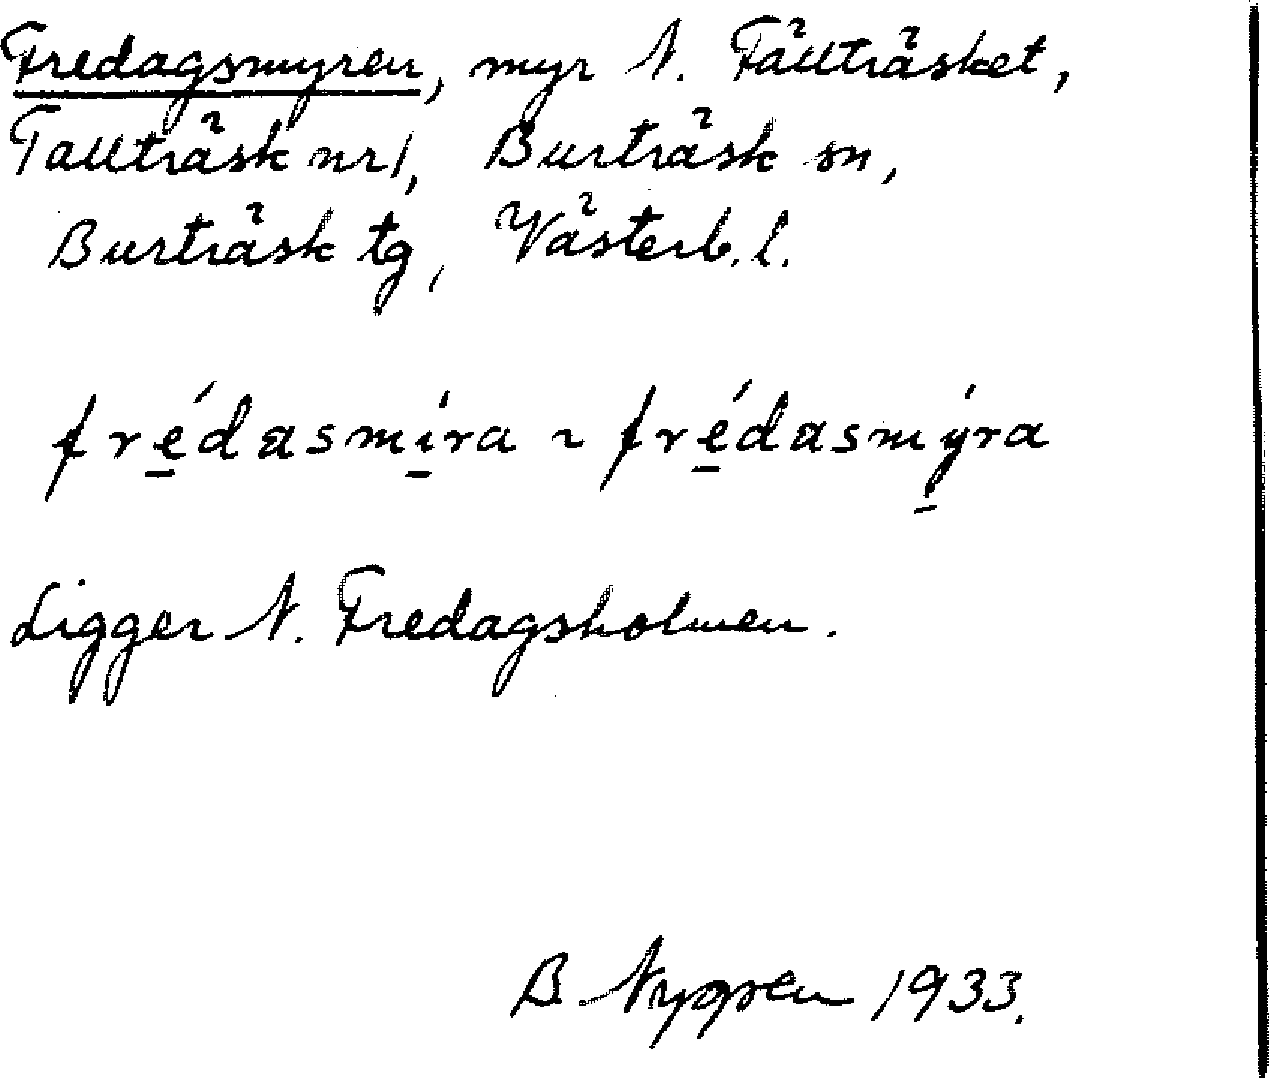 Fredagsmyren, myr N. Fällträsket,
Tallträsk nr 1, Burträsk sn,
Burträsk tg, Västerb. l.
fré̱dasmí̱ra ~ fré̱dasmý̱ra
Ligger N. Fredagsholmen.
B. Nygren 1933.